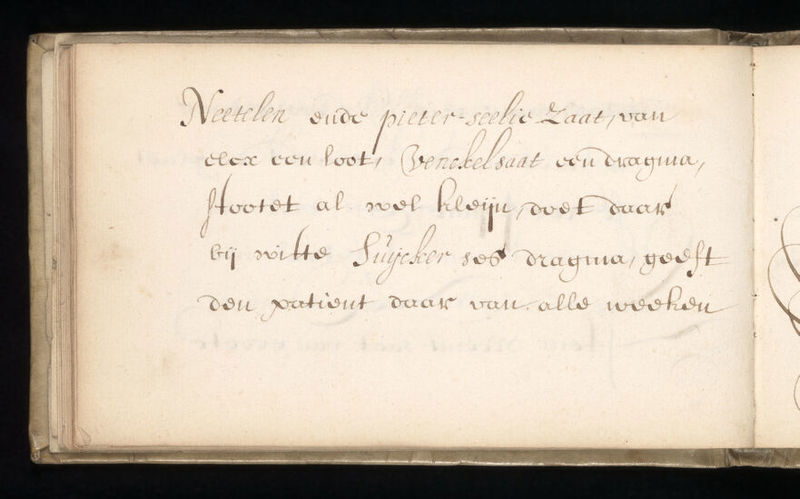 Neetelen ende pieter-seelie zaat, van
elcx een loot, Venckelsaat een dragma,
stootet al wel kleijn, doet daar
bij witte Suÿcker ses dragma, geeft
den patient daar van alle weeken